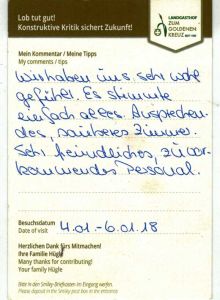 Lob tut gut!
Konstruktive Kritik sichert Zukunft!
LANDGASTHOF
ZUM
GOLDENEN
KREUZ
Mein Kommentar / Meine Tipps
My comments / tips
Wir haben uns sehr wohl
gefühlt. Es stimmte
einfach alles. Ansprechen-
des, sauberes Zimmer.
Sehr freundliches, zuvor-
kommendes Personal.
Besuchsdatum
Date of visit
4.01.-6.01.18
Herzlichen Dank fürs Mitmachen!
Ihre Familie Hügle
Many thanks for contributing!
Your family Hügle
Bitte in den Smiley-Briefkasten im Eingang werfen.
Please deposit in the Smiley post box in the entrance